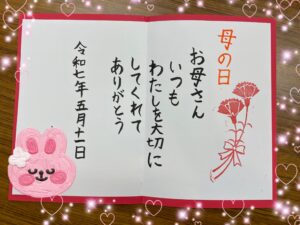 母の日
お母さん
いつも
わたしを大切に
してくれて
ありがとう
令和七年五月十一日